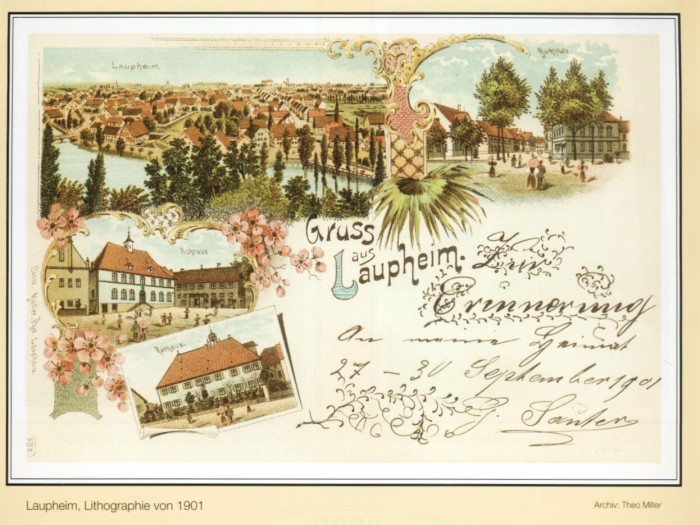 Laupheim
Marktplatz
Rathaus
Gruss
aus
Laupheim.
Rathaus.
Zur
Erinnerung
An meine Heimat
27 - 30 September 1901
G. Sauter
Laupheim, Lithographie von 1901
Archiv: Theo Miller